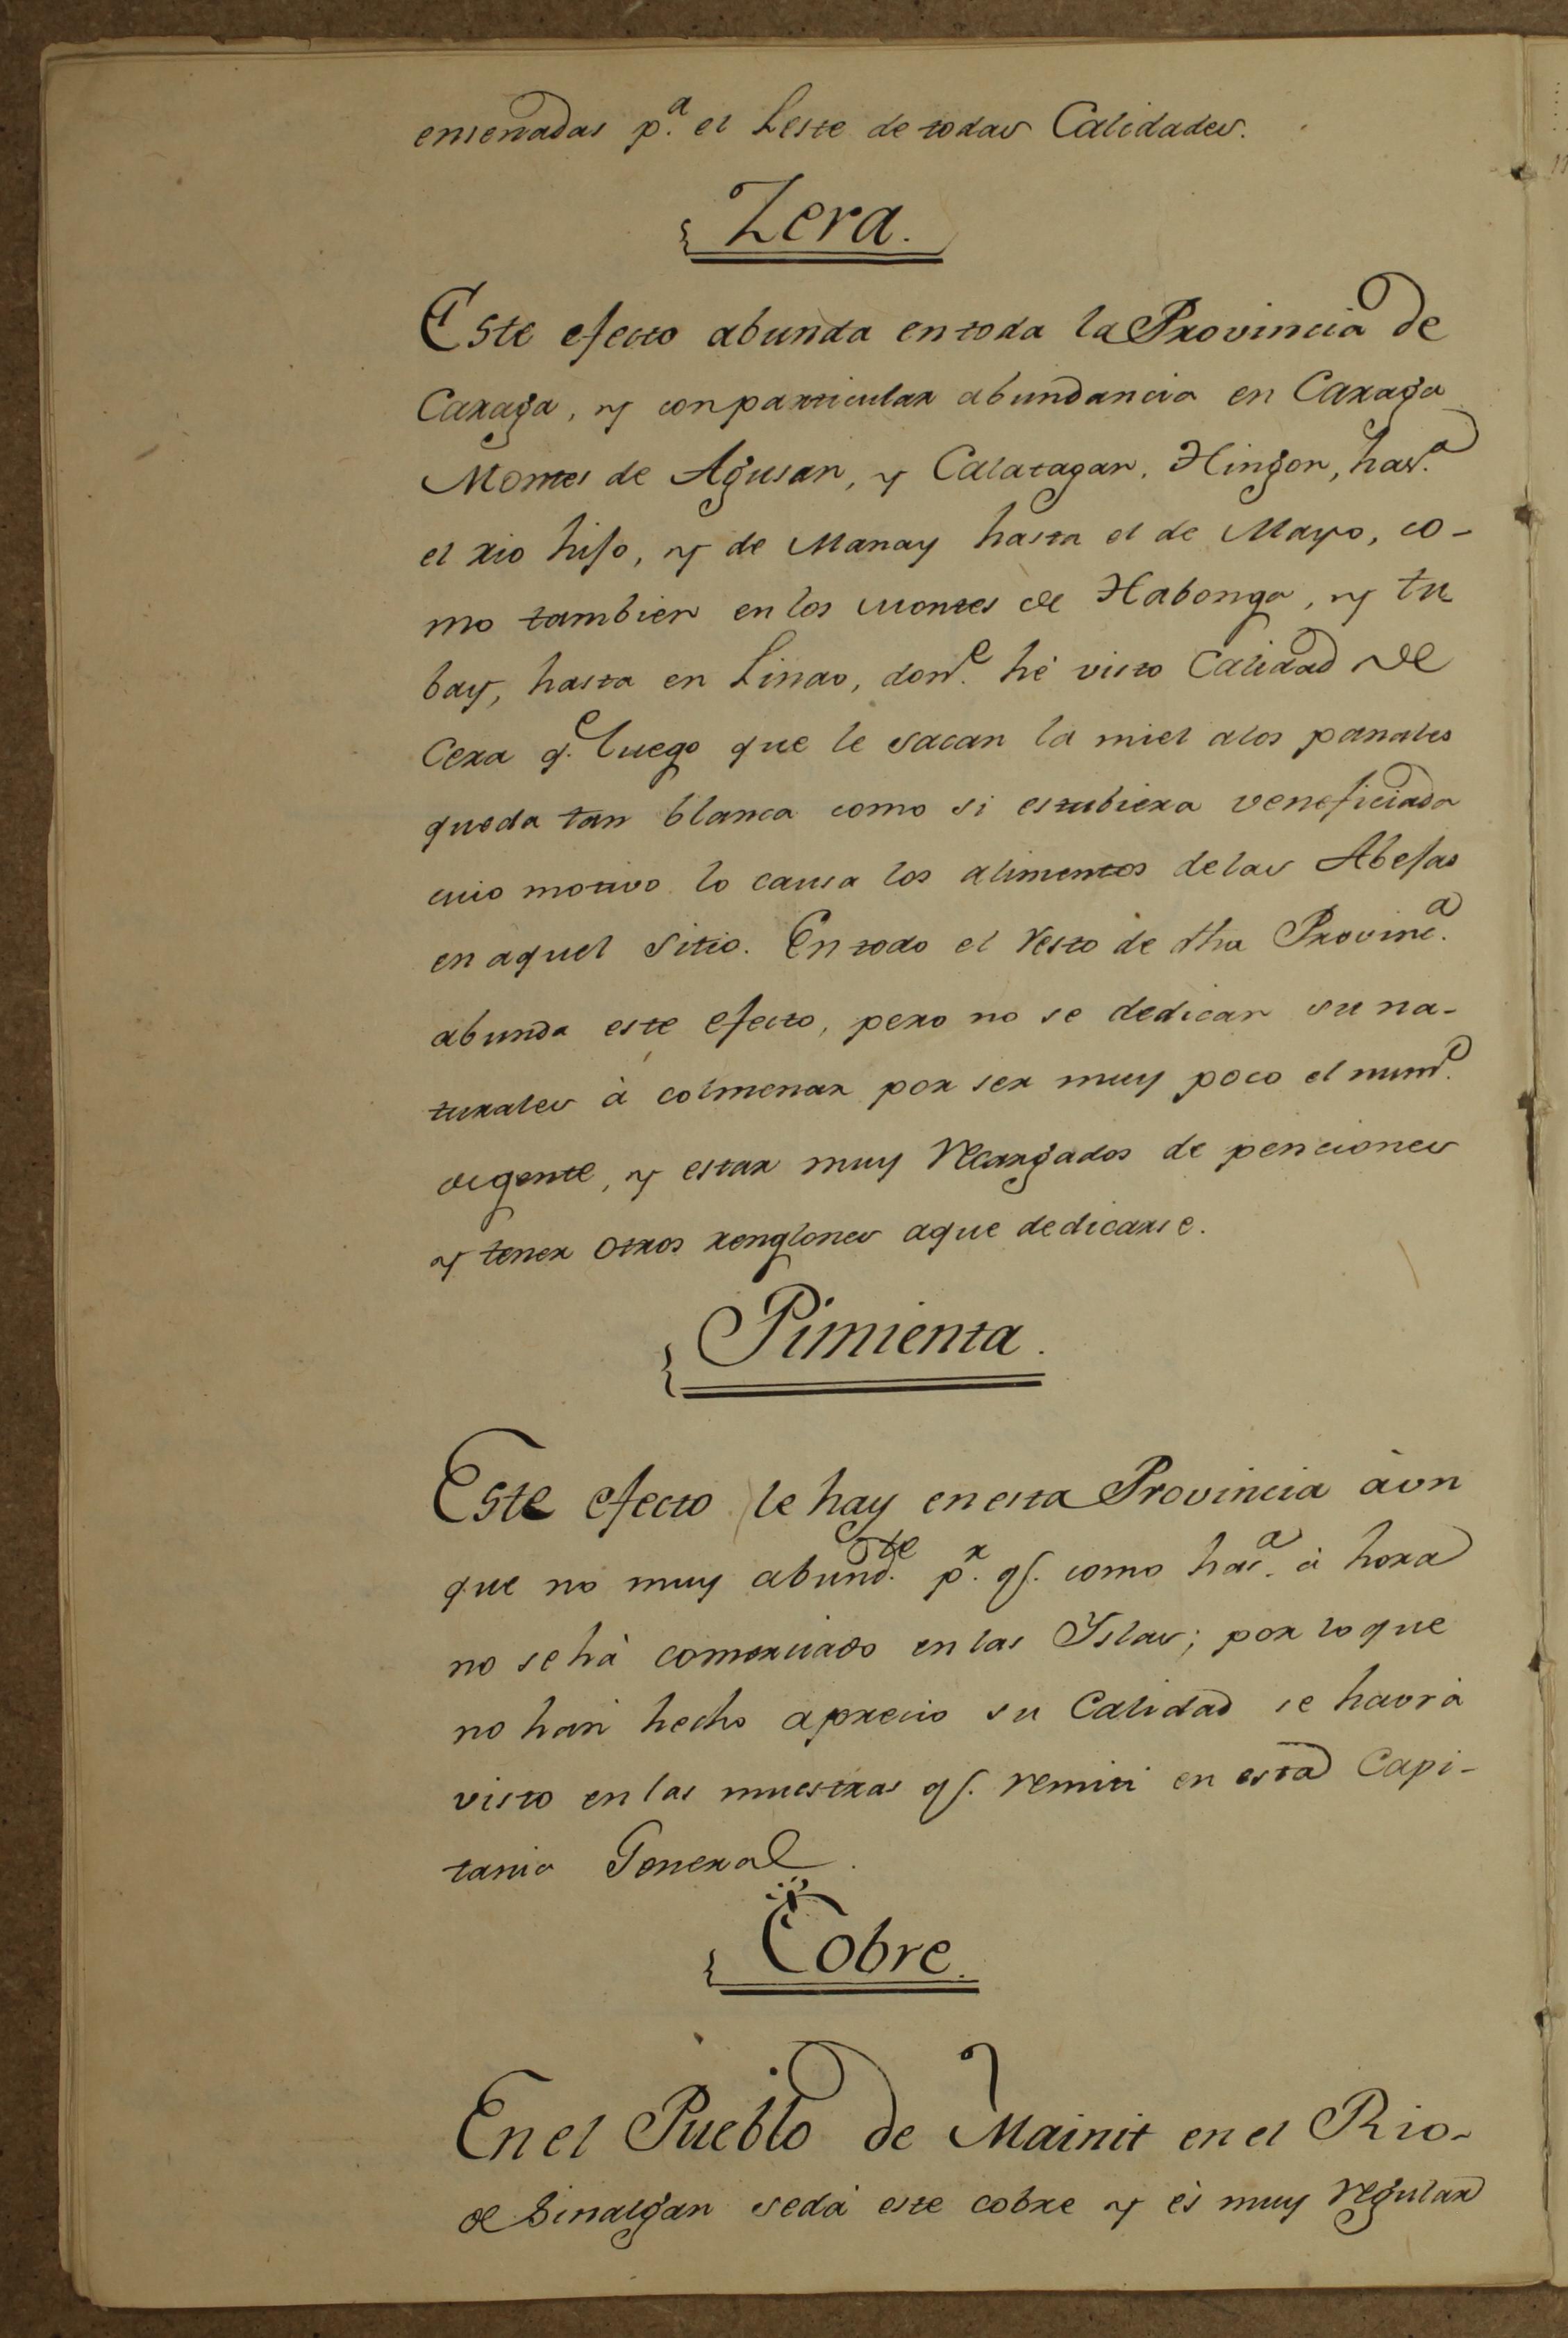 ensenadas p.ª el Leste de todas Calidades.
Zera.
Este efecto abunda en toda la Provincia de
Caraga, y con particular abundancia en Caraga
Montes de Agusan, y Calatagan, Hingon, has.ª
el rio hijo, y de Manay hasta el de Mayo, co-
mo tambien en los Montes de Habongo, y tu
bay, hasta en Linao, don.e hé visto Calidad de
Cera q.e luego que le sacan la miel alos panales
queda tan blanca como si estubiera veneficiada
cuio motivo lo causa los alimentos delas Abejas
en aquel Sitio. En todo el resto de dha Provinc.ª
abunda este efecto, pero no se dedican su na-
turales à colmenar por ser muy poco el num.o
de gente, y estar muy recargados de penciones
y tener otros renglones aque dedicarse.
Pimienta.
Este efecto le hay en esta Provincia àun
que no muy abund.te p.r q.e como has.ª à hora
no se hà comerciado en las Yslas; por lo que
no han hecho aprecio su Calidad se havrà
visto en las muestras q.e remiti en esta Capi-
tania General.
Cobre.
En el Pueblo de Mainit en el Rio-
de Binalgan se dà este cobre y ès muy regular